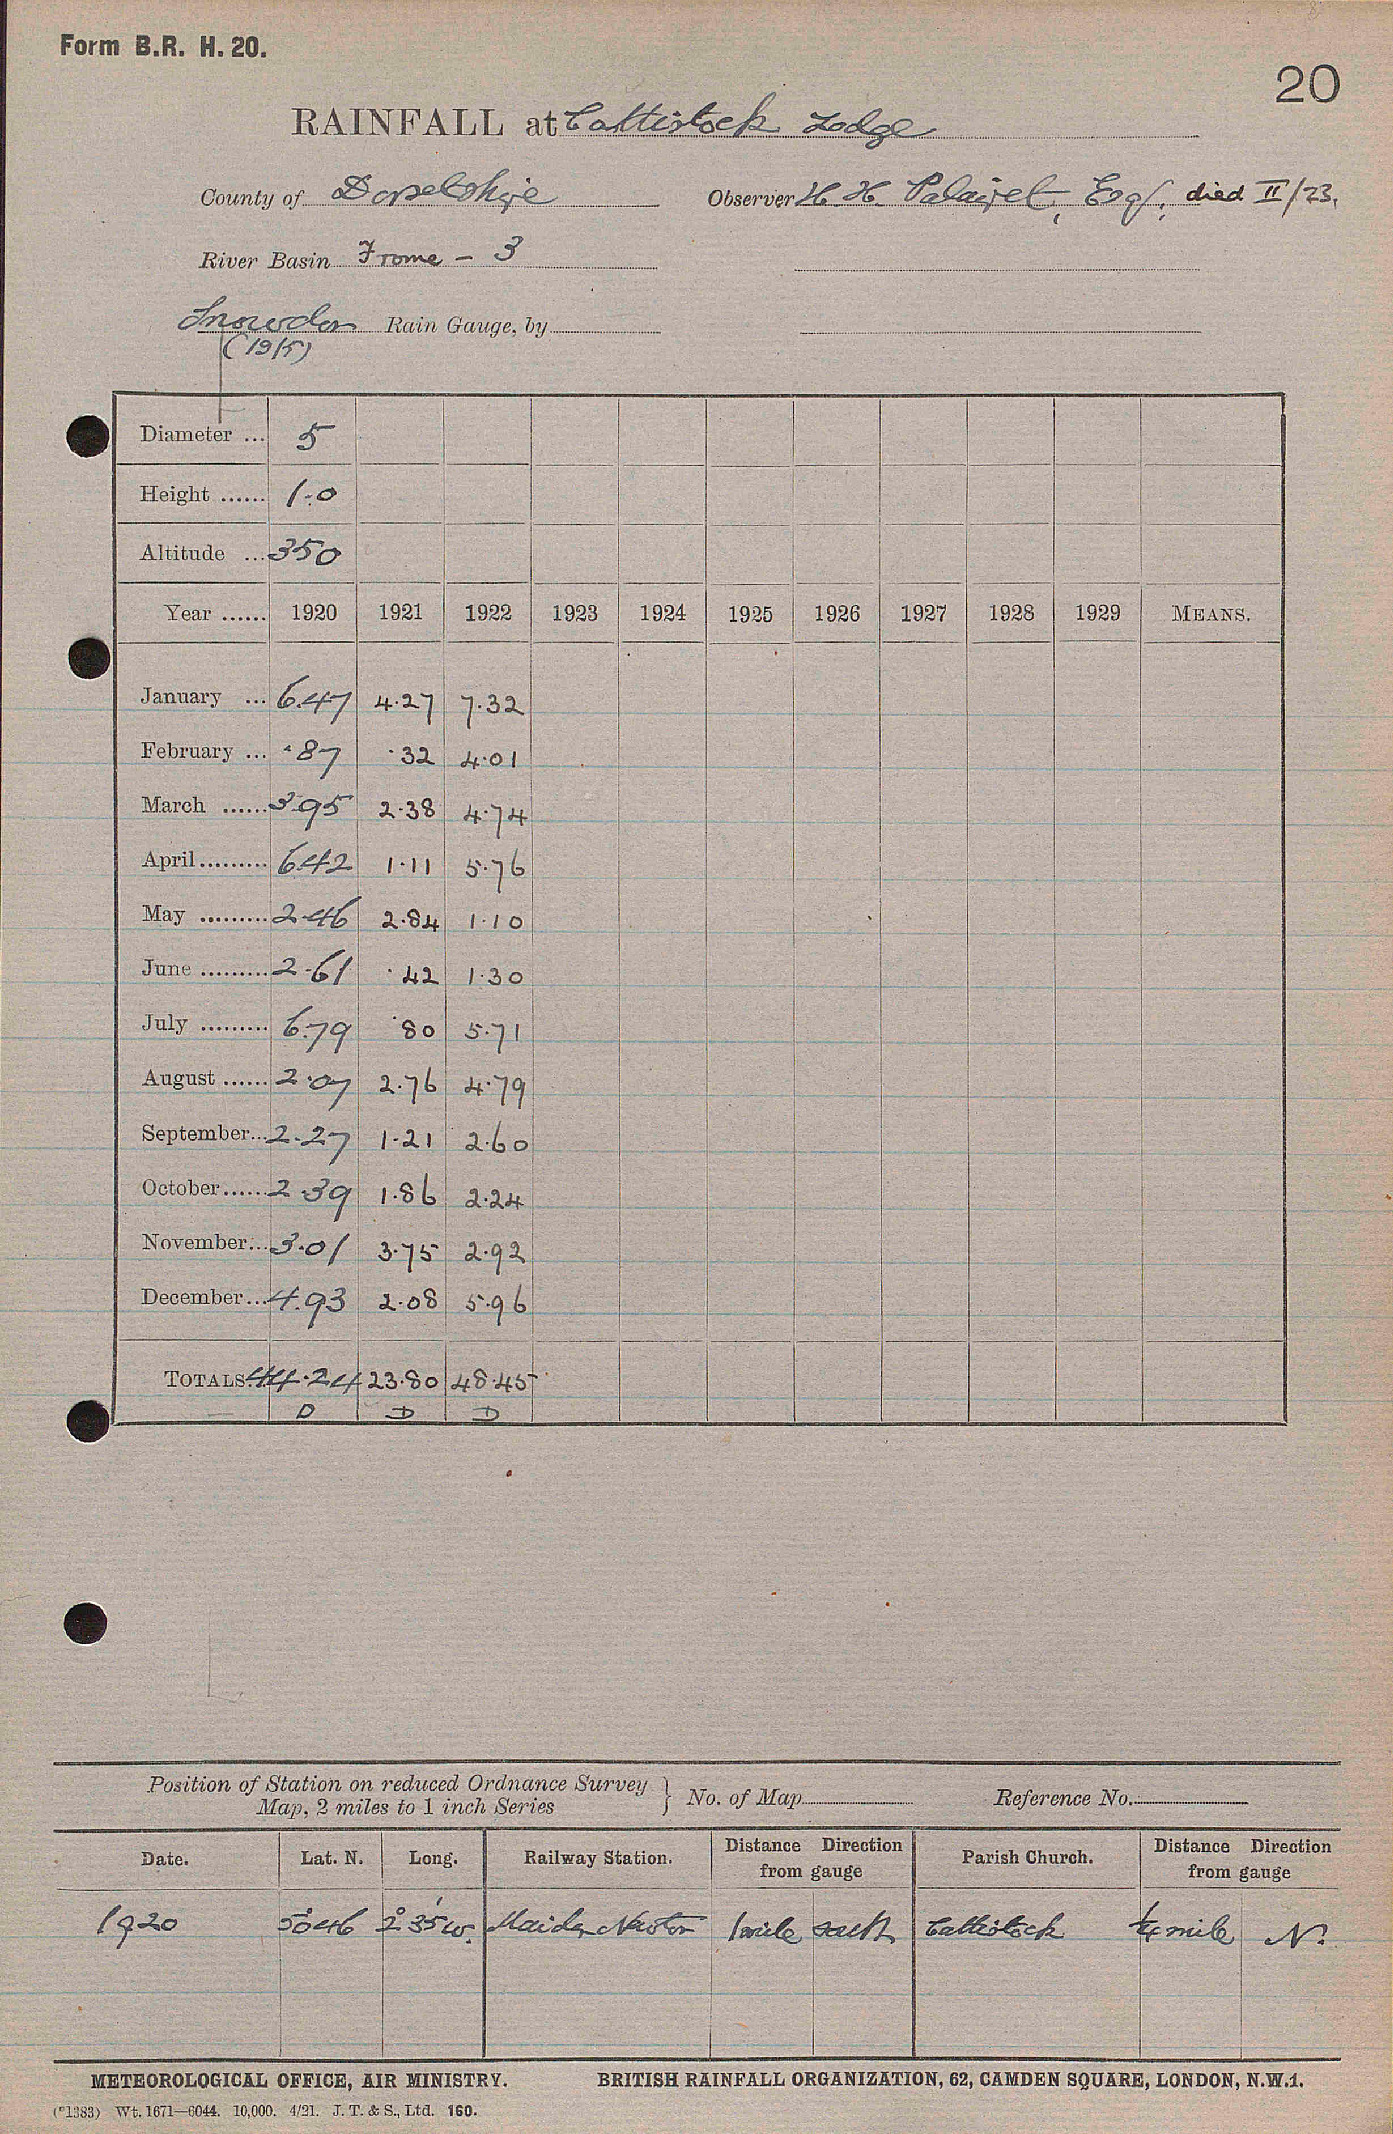 Form B.R. H. 20.
20
RAINFALL at Cattistock Lodge
County of Dorsetshire Observer H. H. Palairet, Esq., died II/23.
River Basin Frome - 3
Snowdon Rain Gauge, by
(1915)
Diameter ... 5
Height ...... 1.0
Altitude ... 350
Year ...... 1920 1921 1922 1923 1924 1925 1926 1927 1928 1929 MEANS.
January ... 6.47 4.27 7.32
February ... .87 .32 4.01
March ...... 3.95 2.38 4.74
April ......... 6.42 1.11 5.76
May ......... 2.46 2.84 1.10
June ......... 2.61 .42 1.30
July ......... 6.79 .80 5.71
August ...... 2.07 2.76 4.79
September... 2.27 1.21 2.60
October...... 2.39 1.86 2.24
November... 3.01 3.75 2.92
December... 4.93 2.08 5.96
TOTALS. 44.24 23.80 48.45
D D D
Position of Station on reduced Ordnance Survey
Map, 2 miles to 1 inch Series } No. of Map Reference No.
Date. Lat. N. Long. Railway Station. Distance Direction from gauge Parish Church. Distance Direction from gauge
1920 50°46 2°35'W. Maiden Newton 1 mile south Cattistock ¼ mile N.
METEOROLOGICAL OFFICE, AIR MINISTRY. BRITISH RAINFALL ORGANIZATION, 62, CAMDEN SQUARE, LONDON, N.W.1.
(*1383) Wt. 1671—6044. 10,000. 4/21. J. T. & S., Ltd. 160.